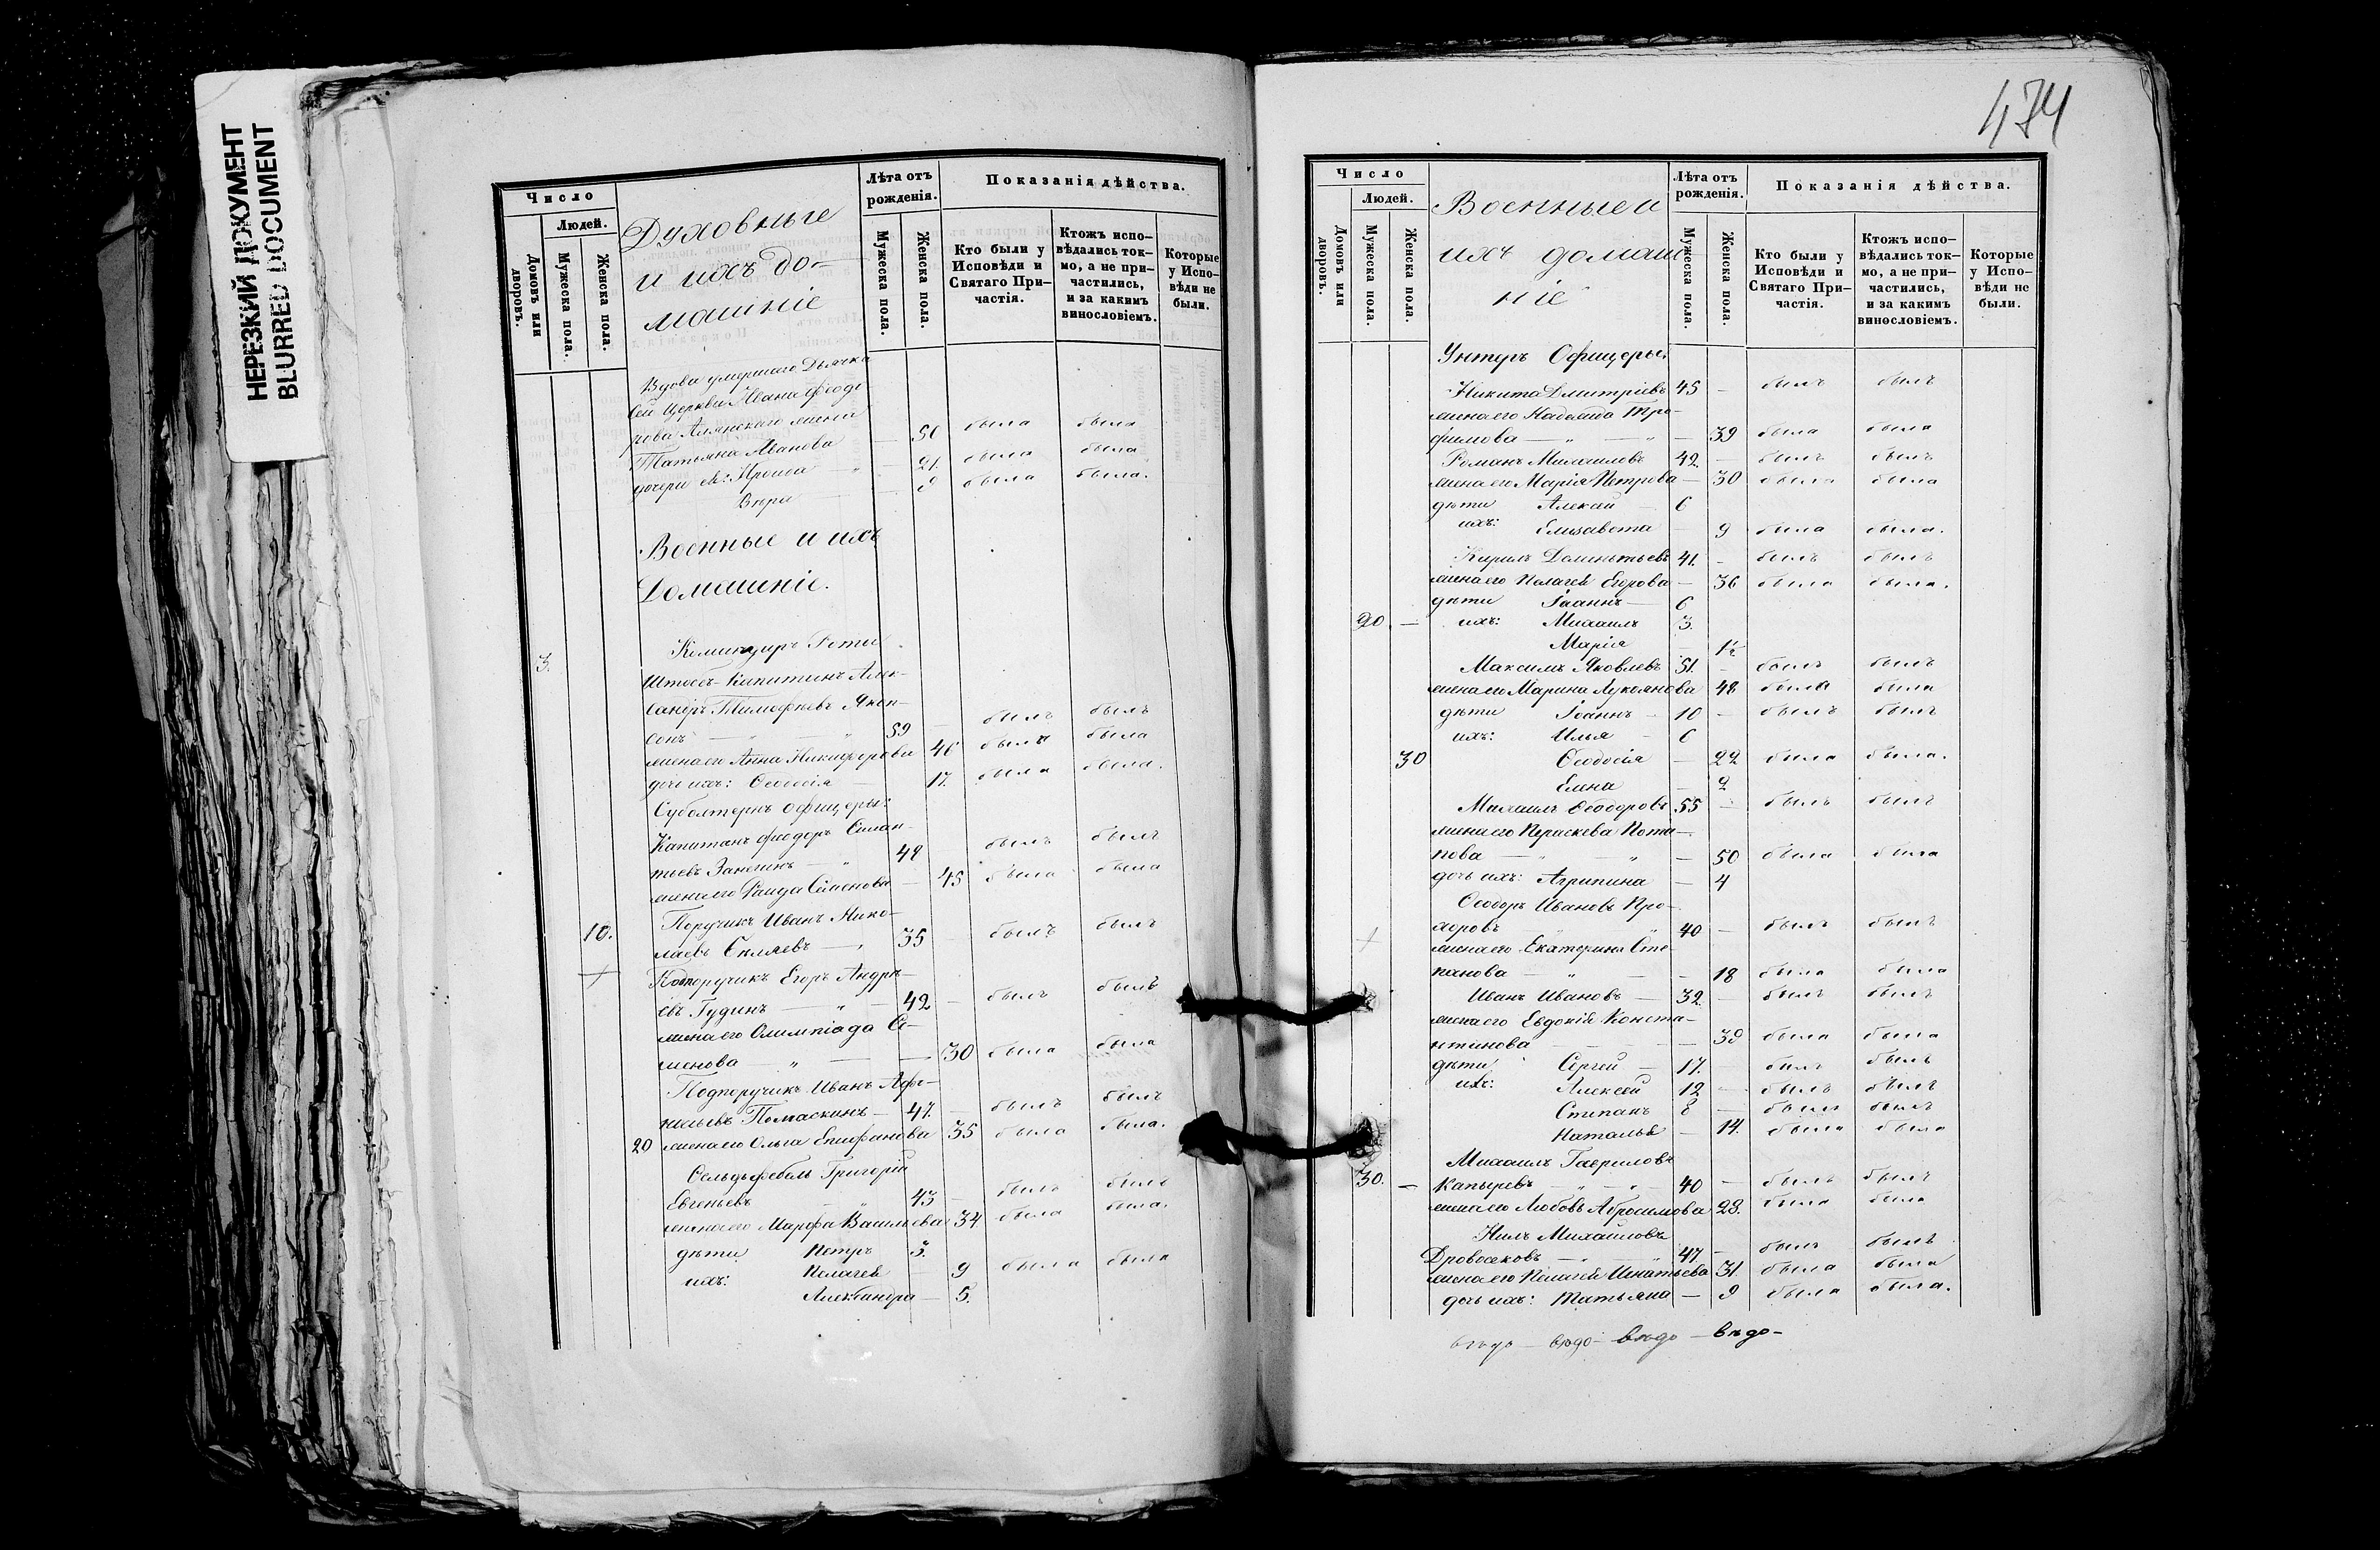 НЕРЕЗКИЙ ДОКУМЕНТ
BLURRED DOCUMENT
Число
Людей.
Домовъ или дворовъ.
Мужеска пола.
Женска пола.
Духовные
и ихъ до-
машніе
Лѣта отъ рожденія.
Мужеска пола.
Женска пола.
Показанія дѣйства.
Кто были у Исповѣди и Святаго При-частія.
Ктожъ испо-вѣдались ток-мо, а не при-частились, и за какимъ винословіемъ.
Которые у Испо-вѣди не были.
Вдова умершаго Дьячка
сей Церкви Ивана Феодо
рова жена
Татьяна Иванова — 50 была была
дочери ея: Ироида — 21. была была
Вѣра — 9 была была.
Военные и ихъ
Домашніе.
3. Командиръ Роты
Штабсъ-Капитанъ Алек-
сандръ Тимофѣевъ Якоп-
сонъ — 59 — былъ былъ
жена его Анна Никифорова 46 была была
дочь ихъ: Феодосія — 17. была была.
Субалтернъ Офицеры:
Капитанъ Феодоръ
48 былъ былъ
жена его — 45 была была
10. Поручикъ Иванъ Нико-
лаевъ Скляевъ — 35 — былъ былъ
Подпоручикъ Егоръ Андре-
евъ Гудинъ — 42 — былъ былъ
жена его Олимпіада Се-
менова — 30 была была
Подпоручикъ Иванъ Афо-
насьевъ Помаскинъ — 47. — былъ былъ
20 жена его Ольга Епифанова 35 была была.
Фельдфебель Григорій
Евгеньевъ 43 — былъ былъ
жена его Марфа Васильева 34 была была.
дѣти Петръ 3.
ихъ: Пелагея — 9 была была
Александра — 5.
474
Число
Людей.
Домовъ или дворовъ.
Мужеска пола.
Женска пола.
Военные и
ихъ домаш-
ніе
Лѣта отъ рожденія.
Мужеска пола.
Женска пола.
Показанія дѣйства.
Кто были у Исповѣди и Святаго При-частія.
Ктожъ испо-вѣдались ток-мо, а не при-частились, и за какимъ винословіемъ.
Которые у Испо-вѣди не были.
Унтеръ Офицеры:
Никита Дмитріевъ 45 — былъ былъ
жена его Надежда Тро-
фимова — 39 была была
Романъ Михаиловъ 42. — былъ былъ
жена его Марія Петрова — 30 была была
дѣти Алексѣй — 6
ихъ: Елизавета — 9 была была.
Кирилъ Дементьевъ 41. — былъ былъ
жена его Пелагея Егорова — 36 была была.
дѣти Іоаннъ — 6
20. — ихъ: Михаилъ 3.
Марія — 1½
Максимъ Яковлевъ 51. — былъ былъ
жена его Марина Лукоянова 48 была была
дѣти Іоаннъ — 10 — былъ былъ
ихъ: Илья — 6
30 Феодосія — 22 была была.
Елена — 2
Михаилъ Феодоровъ 55 — былъ былъ
жена его Параскева Пота-
пова — 50 была была
дочь ихъ: Агрипина — 4
Феодоръ Ивановъ Про-
хоровъ 40 — былъ былъ
жена его Екатерина Сте-
панова — 18 была была
Иванъ Ивановъ — 32. — былъ былъ
жена его Евдокія Конста-
нтинова — 39 была была
дѣти Сергей — 17. — былъ былъ
ихъ: Алексей 12 — былъ былъ
Степанъ 8 — былъ былъ
Наталья — 14. была была
Михаилъ Гавриловъ
30. — Капыревъ — 40 — былъ былъ
жена его Любовь Абросимова 28. была была
Нилъ Михайловъ
Дровосековъ — 47 — былъ былъ
жена его Пелагея Игнатьева 31. была была
дочь ихъ: Татьяна — 9 была была.
вѣдо — вѣдо — вѣдо — вѣдо-